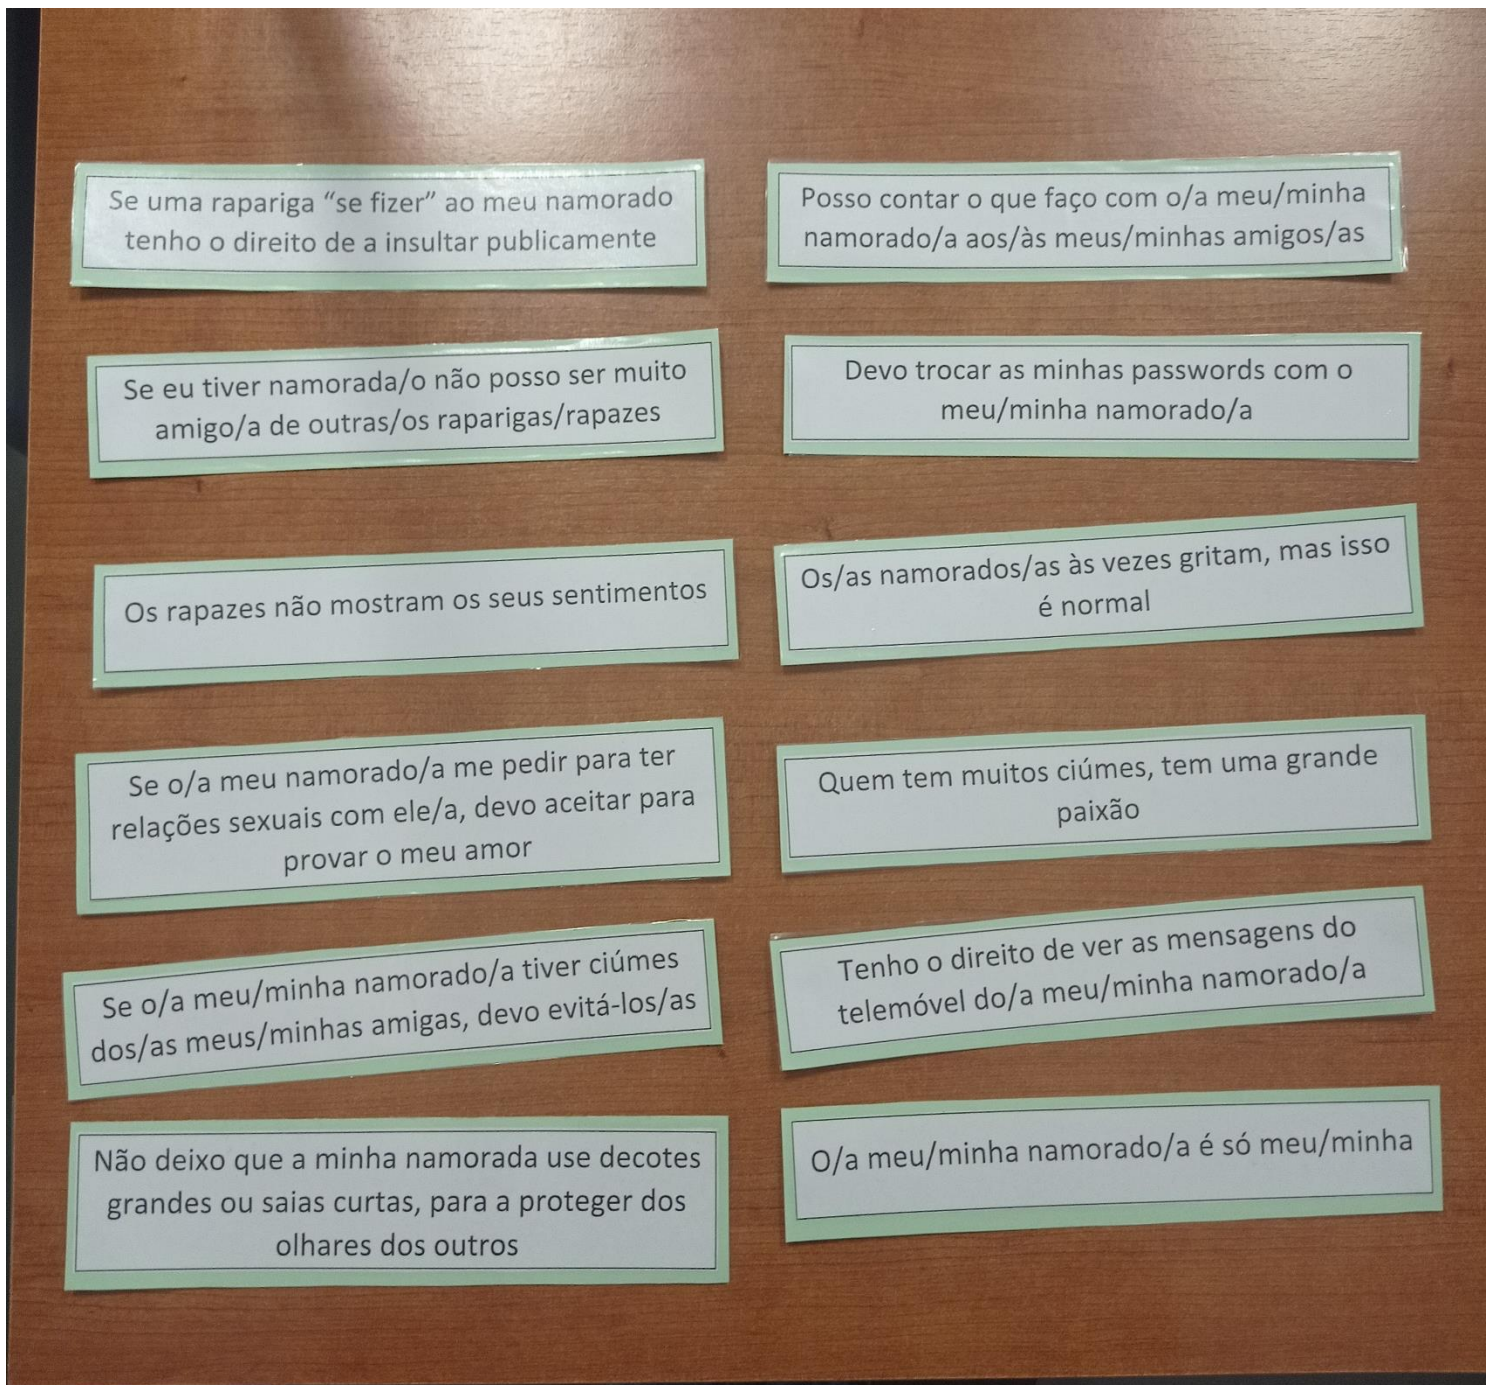 Se uma rapariga “se fizer” ao meu namorado
tenho o direito de a insultar publicamente
Se eu tiver namorada/o não posso ser muito
amigo/a de outras/os raparigas/rapazes
Os rapazes não mostram os seus sentimentos
Se o/a meu namorado/a me pedir para ter
relações sexuais com ele/a, devo aceitar para
provar o meu amor
Se o/a meu/minha namorado/a tiver ciúmes
dos/as meus/minhas amigas, devo evitá-los/as
Não deixo que a minha namorada use decotes
grandes ou saias curtas, para a proteger dos
olhares dos outros
Posso contar o que faço com o/a meu/minha
namorado/a aos/às meus/minhas amigos/as
Devo trocar as minhas passwords com o
meu/minha namorado/a
Os/as namorados/as às vezes gritam, mas isso
é normal
Quem tem muitos ciúmes, tem uma grande
paixão
Tenho o direito de ver as mensagens do
telemóvel do/a meu/minha namorado/a
O/a meu/minha namorado/a é só meu/minha